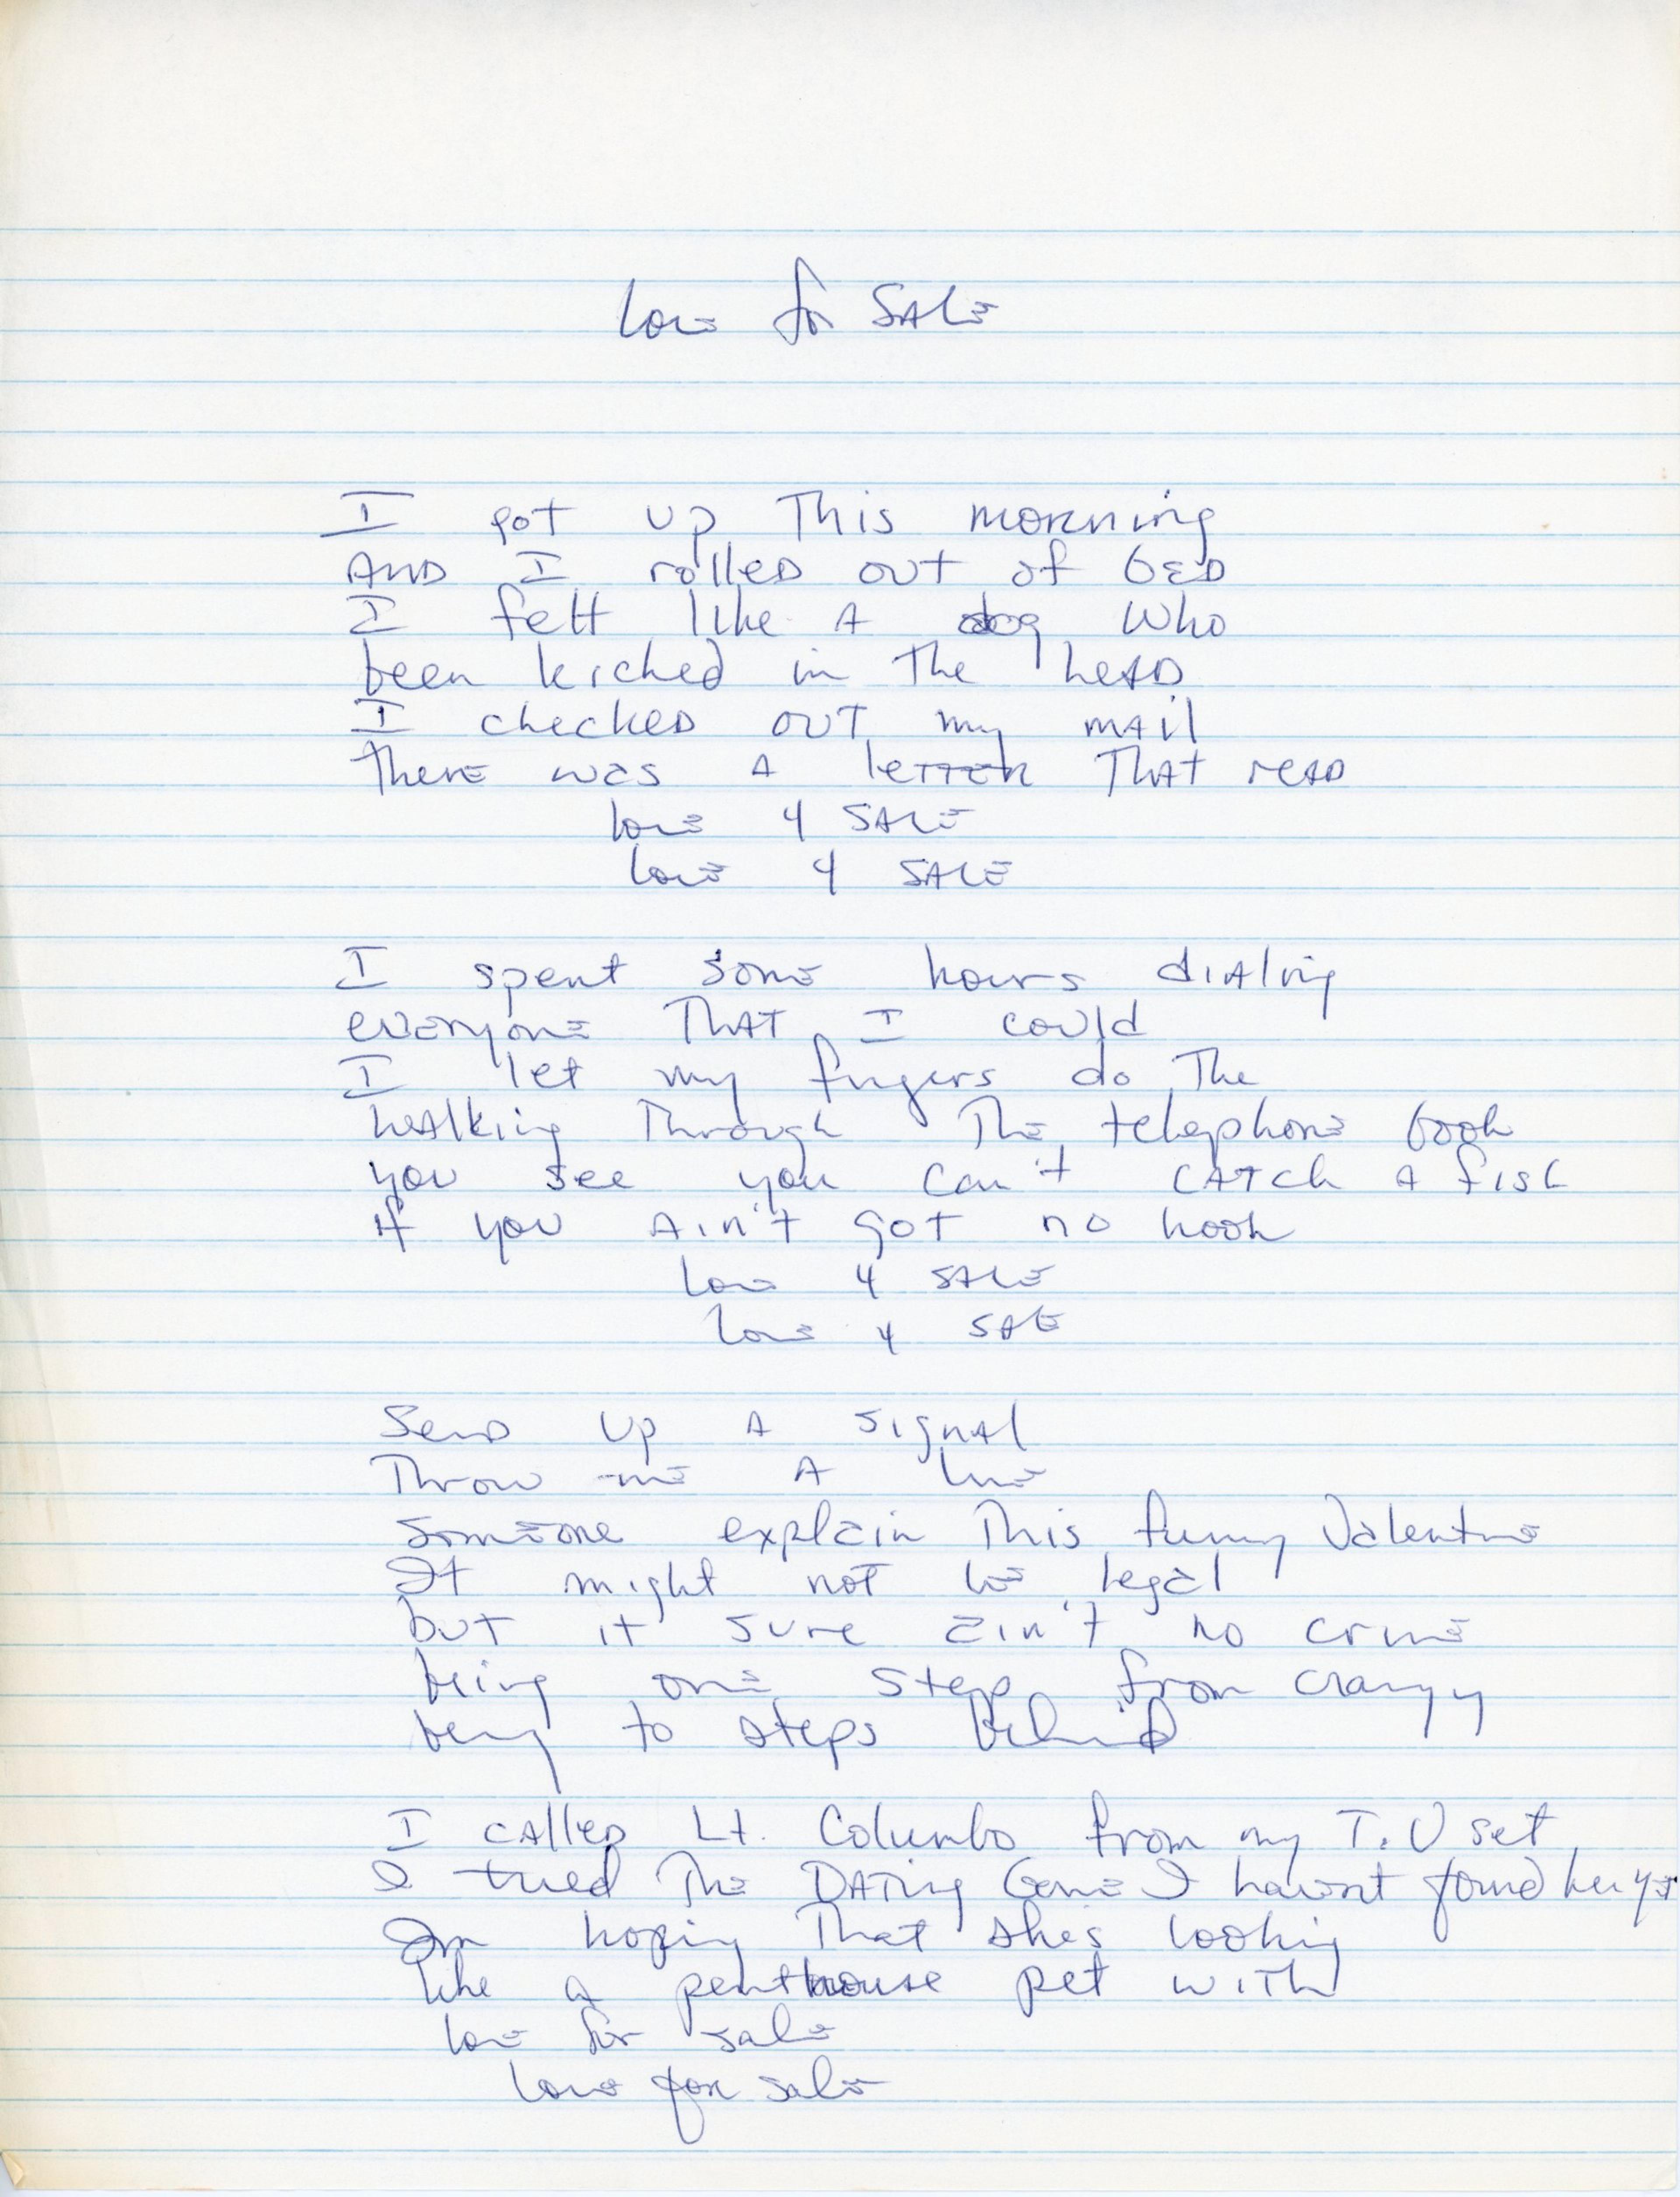 Love for SALE
I got up This morning
AND I rolled out of BED
I felt like A dog who
been kicked in The heAD
I checkeD OUT my mAil
There was A letter THAT reAD
Love 4 SALE
Love 4 SALE
I spent some hours diAling
everyone THAT I could
I let my fingers do The
wAlking Through The telephone book
you see you can't CATCh A fish
if you Ain't got no hook
Love 4 SALE
Love 4 SALE
SenD up A signAl
Throw me A line
someone explain This funny Valentine
It might not be legal
but it sure ain't no crime
being one step from crazyy
being to steps behind
I cAlleD Lt. Columbo from my T.V set
I tried The DATing Game I havent found her yet
Im hoping That shes looking
like a penthouse pet wiTh
love for sale
love for sale